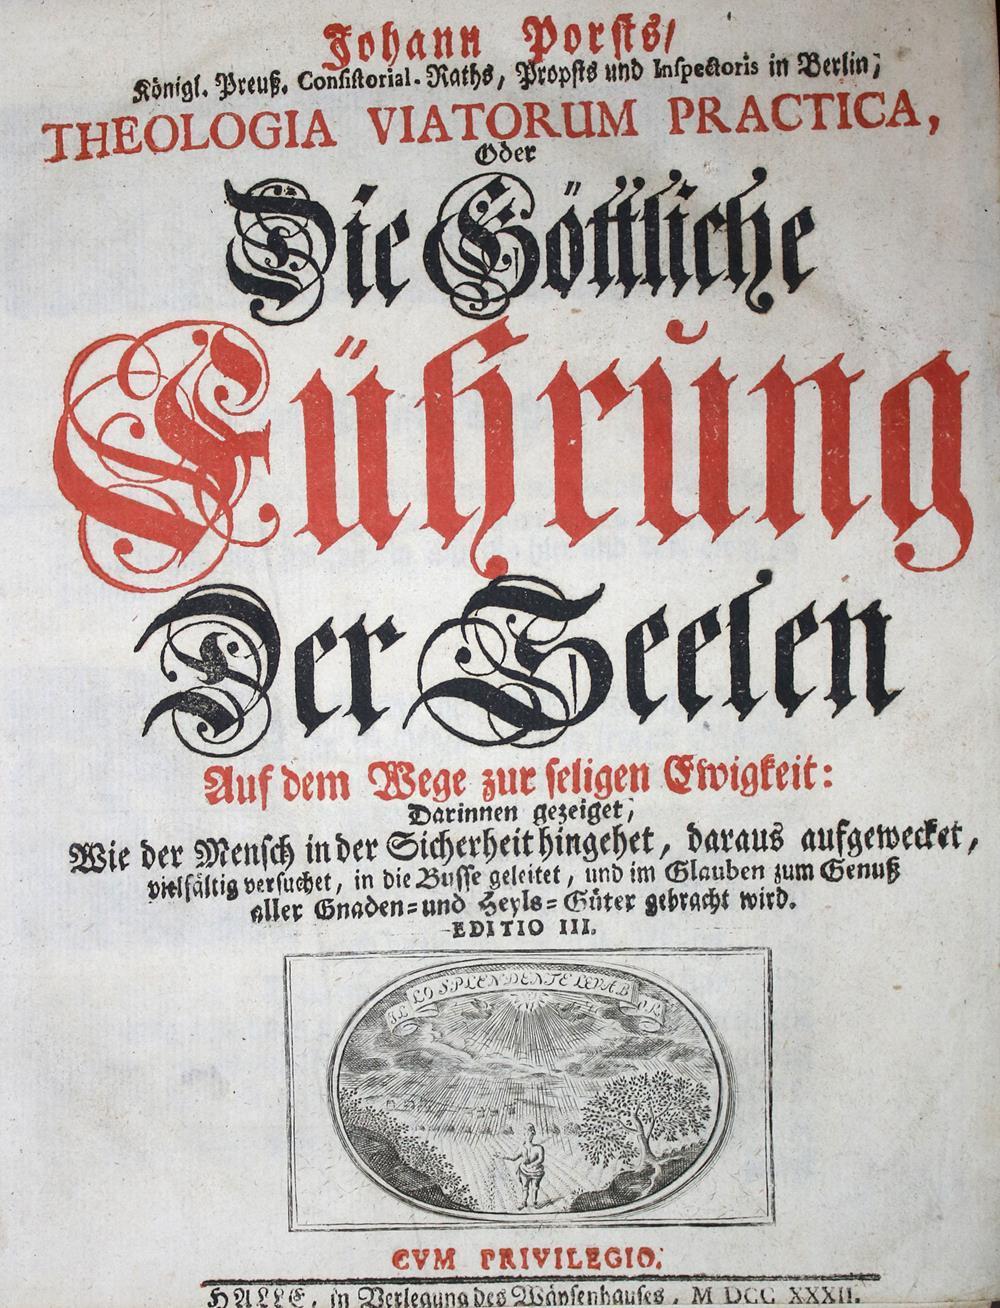 Johann Porsts/
Königl. Preuß. Consistorial-Raths, Propsts und Inspectoris in Berlin,
THEOLOGIA VIATORUM PRACTICA,
Oder
Die Göttliche
Führung
Der Seelen
Auf dem Wege zur seligen Ewigkeit:
Darinnen gezeiget,
Wie der Mensch in der Sicherheit hingehet, daraus aufgewecket,
vielfältig versuchet, in die Busse geleitet, und im Glauben zum Genuß
aller Gnaden- und Heyls-Güter gebracht wird.
EDITIO III.
ILLO SPLENDENTE LEVABOR
CVM PRIVILEGIO.
HALLE, in Verlegung des Wäysenhauses, M DCC XXXII.